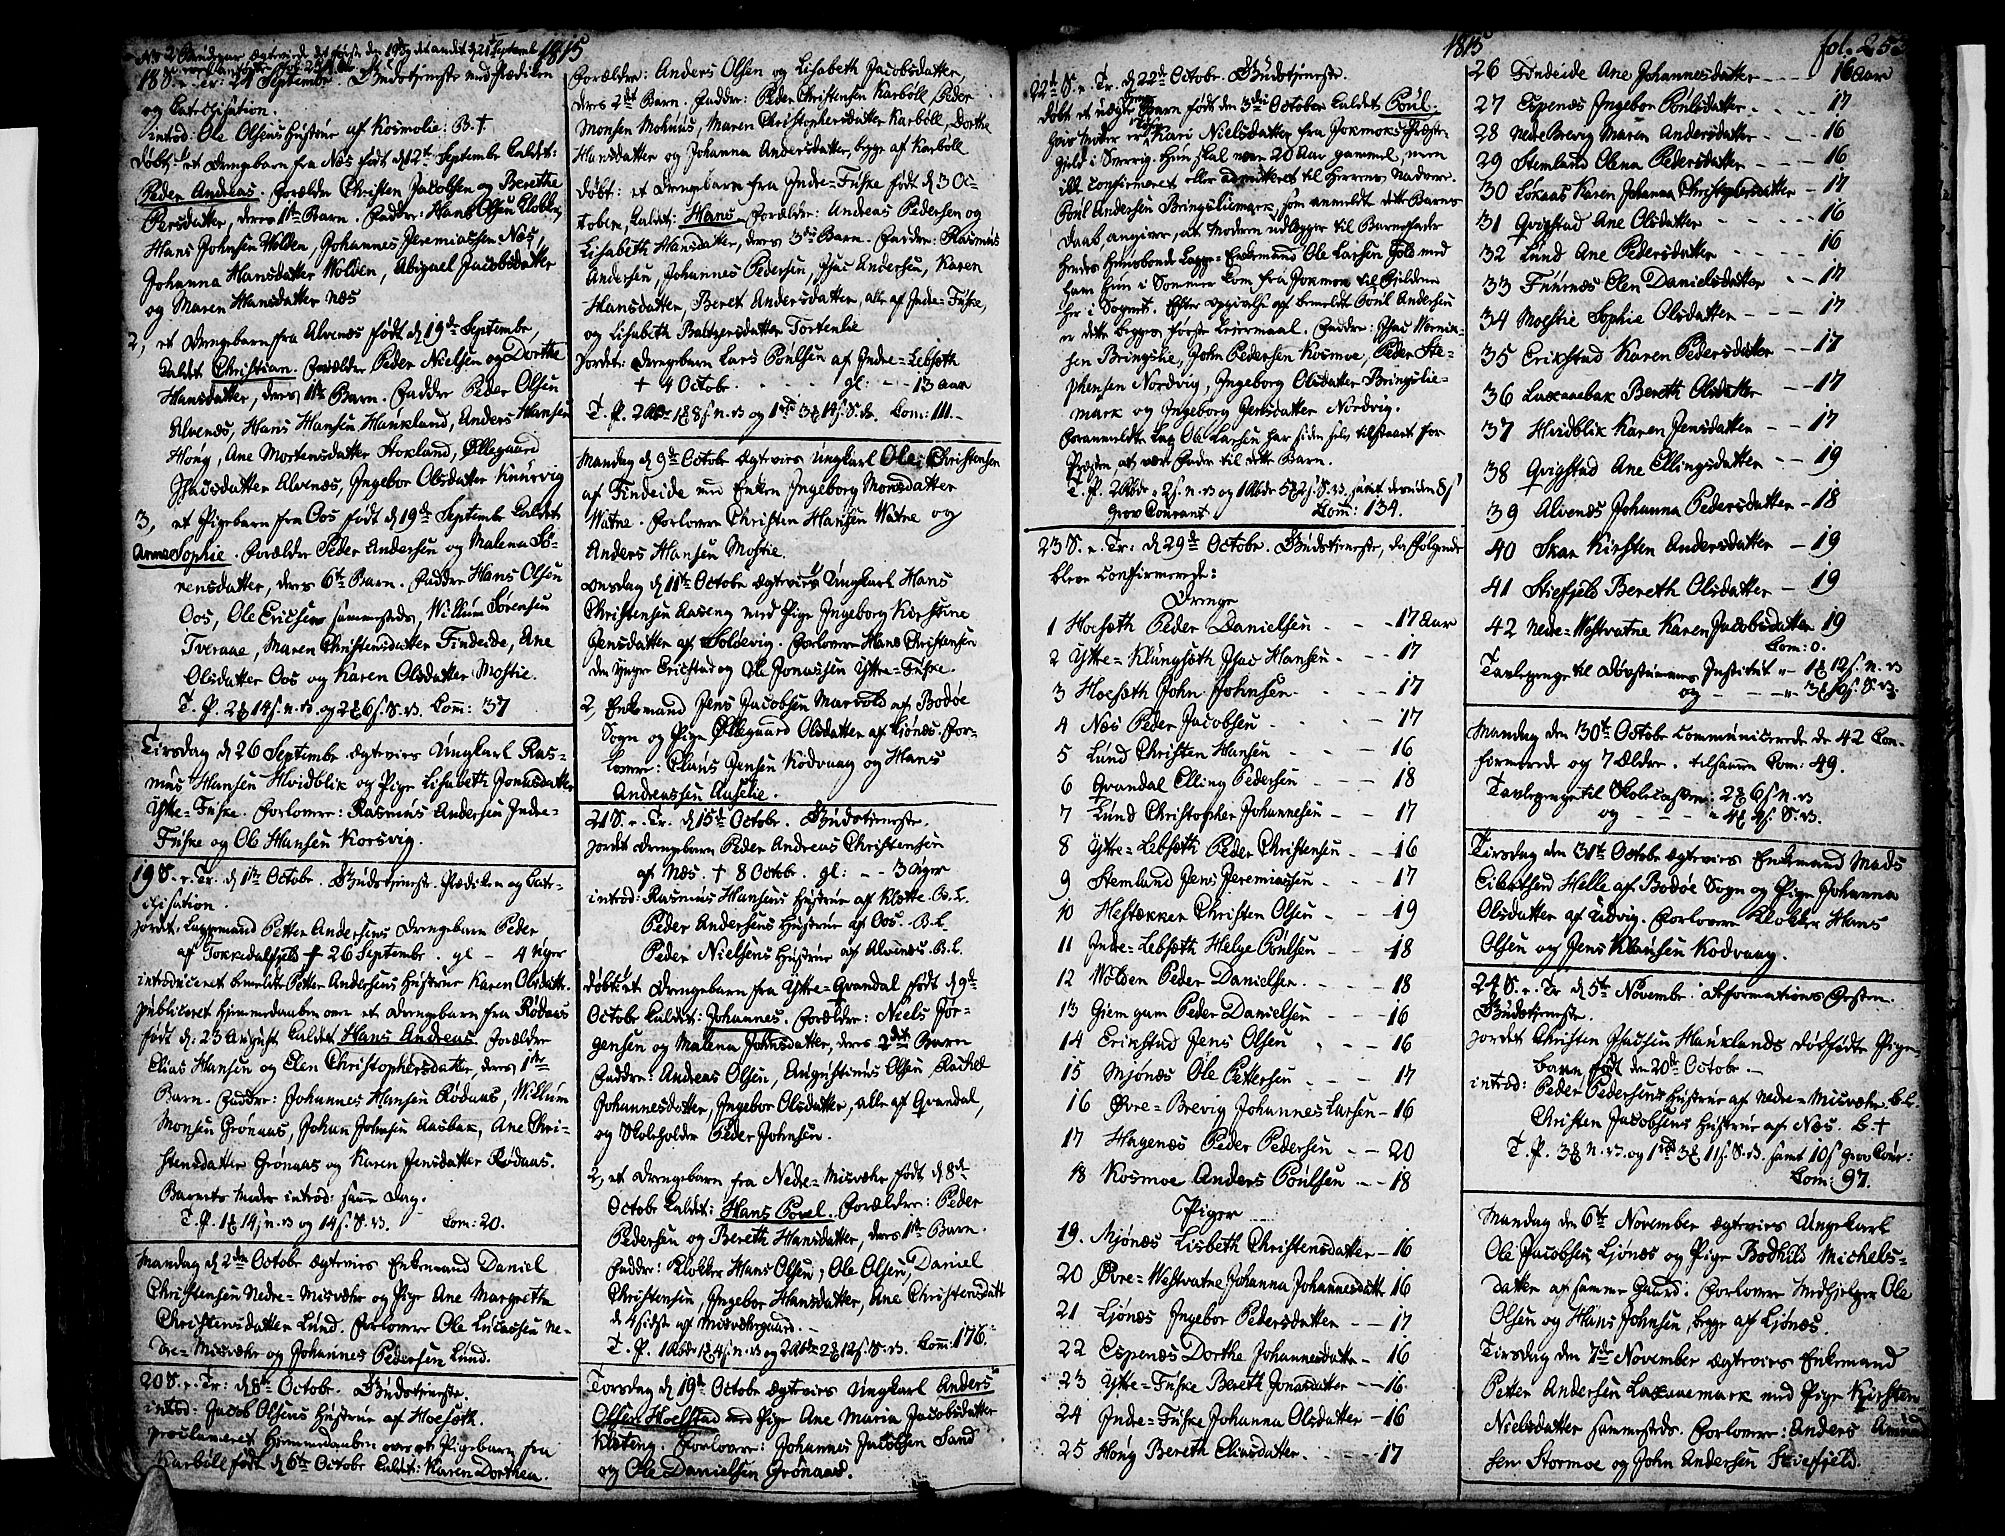 1815
18 S. e. Tr. 24 Septembr. Gudstjeneste med Prædiken
og Catechisation.
introd: Ole Olsens Hustrue af Kosmolie: B. †
Døbt: 1 et Drengebarn fra Næs født d 12te Septembr kaldet:
Peder Andreas. Forældre Christen Jacobsen og Berethe
Persdatter, deres 11te Barn. Faddre: Hans Olsen Klokker,
Hans Johnsen Wolden, Johannes Jeremiassen Næs,
Johanna Hansdatter Wolden, Abigael Jacobsdatter
og Maren Hansdatter Næs
2, et Drengebarn fra Alvenæs født d 19de Septembr,
kaldet Christian. Forældre Peder Nielsen og Dorthe
Hansdatter, deres 11te Barn. Faddre Peder Olsen
Alvenæs, Hans Hansen Haukland, Anders Hansen
Hong, Ane Mortensdatter Stokland, Øllegaard
Isaksdatter Alvenæs, Ingebor Olsdatter Knurvig
3, et Pigebarn fra Oos født d 19de Septembr kaldet
Anne Sophie. Forældre Peder Andersen og Malena Sø-
rensdatter, deres 6te Barn. Faddre Hans Olsen
Oos, Ole Ericsen sammesteds, Willum Sørensen
Tveraae, Maren Christensdatter Findeide, Ane
Olsdatter Oos og Karen Olsdatter Mostie.
T. P. 2 14 s. n. v. og 2 6 s. S. v. Com: 37
Tirsdag d 26 Septembr ægtevies Ungkarl Ras-
mus Hansen Hvidblik og Pige Lisabeth Jonasdatter
Ytre-Fuske. Forlovere: Rasmus Andersen Inde-
Fuske og Ole Hansen Korsvig.
19 S. e. Tr. d 1te Octobr. Gudstjeneste. Prædiken og Cate-
chisation.
Jordet: Lappemand Petter Andersens Drengebarn Peder
af Tokkedalfjeld † 26 Septembr. gl – 4 Uger
introduceret bemeldte Petter Andersens Hustrue Karen Olsdattr.
publiceret Hjemmedaaben over et Drengebarn fra Rødaas
født d: 23 August kaldet Hans Andreas. Forældre
Elias Hansen og Elen Christophersdatter, deres 1te
Barn. Faddre: Johannes Hansen Rødaas, Willum
Monsen Grønaas, Johan Johnsen Aasbak, Ane Chri-
stensdatter Grønaas og Karen Jensdatter Rødaas.
Barnets Moder introd: samme Dag.
T. P. 1 14 s. n. v og 14 s. S. v. Com: 20.
Mandag d 2den Octobr ægtevies Enkemand Daniel
Christensen Nedre-Misvæhr og Pige Ane Margrethe
Christensdatter Lund. Forlovere Ole Lucassen Ne-
dre-Misvæhr og Johannes Pedersen Lund.
20 S. e. Tr: d 8de Octobr. Gudstjeneste.
introd: Jacob Olsens Hustrue af Hoesøth.
proclameret Hjemmedaaben over et Pigebarn fra
Karbøll født d 6te Octobr kaldet: Karen Dorthea.
Forældre: Anders Olsen og Lisabeth Jacobsdatter,
deres 2det Barn. Faddre: Peder Christensen Karbøll, Peder
Monsen Mohuus, Maren Christophersdatter Karbøll, Dorthe
Hansdatter og Johanna Andersdatter, begge af Karbøll
Døbt: et Drengebarn fra Inde-Fuske født d 3 Oc-
tober, kaldet: Hans. Forældre: Andreas Pedersen og
Lisabeth Hansdatter, deres 3die Barn. Faddre: Rasmus
Andersen, Johannes Pedersen, Isac Andersen, Karen
Hansdatter, Beret Andersdatter, alle af Inde-Fuske,
og Lisabeth Baltzersdatter Tortenlie
Jordet: Drengebarn Lars Poulsen af Indre-Lebsøth
† 4 Octobr. gl: – 13 aar
Com: 111.
Mandag d 9de Octobr ægtevies Ungkarl Ole Christensen
af Findeide med Enken Ingeborg Monsdatter
Watne. Forlovere Christen Hansen Watne og
Anders Hansen Mostie.
Onsdag d 11te Octobr ægtevies 1 Ungkarl Hans
Christensen Aaseng med Pige Ingeborg Kirstine
Jensdatter af Soldevig. Forlovere Hans Christensen
den Yngre Ericstad og Ole Jonassen Ytre-Fuske.
2, Enkemand Jens Jacobsen Marvold af Bodøe
Sogn og Pige Øllegaard Olsdatter af Ljønæs. For-
lovere: Claus Jensen Kodvaag og Hans
Andreassen Auselie.
21 S. e. Tr. d 15de Octobr. Gudstjeneste.
Jordet Drengebarn Peder Andreas Christensen
af Næs. † 8 Octobr. gl: – 3 Uger
introd: Rasmus Hansens Hustrue af Klette. B. L.
Peder Andersens Hustrue af Oos. B. L.
Peder Nielsens Hustrue af Alvenæs. B. L.
Døbt: 1 et Drengebarn fra Ytre-Qvandal født d 9de
Octobr kaldet: Johannes. Forældre: Niels Jør-
gensen og Malena Johnsdatter, deres 2det Barn
Faddre: Andreas Olsen, Augustinus Olsen, Rachel
Johannesdatter, Ingebor Olsdatter, alle af Qvandal,
og Skoleholder Peder Johnsen.
2, et Drengebarn fra Nedre-Misvæhr født d 8de
Octobr kaldet: Hans Povel. Forældre: Peder
Pedersen og Bereth Hansdatter, deres 1te Barn.
Faddre: Klokker Hans Olsen, Ole Olsen, Daniel
Christensen, Ingebor Hansdatter, Ane Christensdatt
de 4 sidste af Misværgaard. –
Com: 176.
Torsdag d 19de Octobr ægtevies Ungkarl Anders
Olsen Hoelstad med Pige Ane Maria Jacobsdatter
Kleteng. Forlovere: Johannes Jacobsen Sand
og Ole Danielsen Grønaas.
1815
fol. 253
22de S. e. Tr. d 22de Octobr. Gudstjeneste.
Døbt et uægte Barn født den 3die October kaldet Poul.
hvis Moder er Kari Nielsdatter fra Jokmoks Præste-
gield i Sverrig. Hun skal være 20 Aar gammel, men
ikke confirmeret eller admitteret til Herrens Nadvere.
Poul Andersen Bringsliemark, som anmeldte dette Barns
Daab, angiver, at Moderen udlægger til Barnefader
hendes Huusbonde Lappe-Enkemand Ole Larsen Fold med
ham hun i Sommer kom fra Jokmok til Fjeldene
her i Sognet. Efter opgivelse af bemeldte Poul Andersen
er dette begges første Leiermaal. Faddre: Isac Wernis-
sen Bringslie, John Pedersen Kosmoe, Peder Ste-
phensen Nordvig, Ingeborg Olsdatter Bringslie-
mark og Ingeborg Jensdatter Nordvig.
Foranmeldte Lap Ole Larsen har siden selv tilstaaet for
Præsten at være Fader til dette Barn.
grov Courant Com: 134.
23 S. e. Tr: d 29de Octobr. Gudstjeneste, da følgende
bleve confirmerede:
Drenge
1 Hoesøth Peder Danielsen – 17 Aar
2 Ytre-Klungsøth Isac Hansen – 17
3 Hoesøth John Johnsen – 17
4 Næs Peder Jacobsen – 17
5 Lund Christen Hansen – 16
6 Qvandal Elling Pedersen – 18
7 Lund Christopher Johannesen – 17
8 Ytre-Lebsøth Peder Christensen – 16
9 Stemland Jens Jeremiassen – 17
10 Hestækker Christen Olsen – 19
11 Indre-Lebsøth Helge Poulsen – 18
12 Wolden Peder Danielsen – 18
13 Giemgam Peder Danielsen – 16
14 Erikstad Jens Olsen – 16
15 Mjønæs Ole Pettersen – 17
16 Øvre-Brevig Johannes Larsen – 16
17 Hagenæs Peder Pedersen – 20
18 Kosmoe Anders Poulsen – 18
Piger
19. Mjønæs Lisbeth Christensdatter – 16
20 Øvre-Westvatne Johanna Johannesdatt 16
21 Ljønæs Ingebor Pedersdatter – 17
22 Espenæs Dorthe Johannesdatter – 16
23 Ytre-Fuske Bereth Jonasdatter – 16.
24 Indre-Fuske Johanna Olsdatter – 16
25 Hong Bereth Eliasdatter – 17
26 Findeide Ane Johannesdatter – 16 Aar
27 Espenæs Ingebor Poulsdatter – 17
28 Nedre Brevig Maren Andersdatter – 16
29 Stemland Olena Pedersdatter – 16
30 Løkaas Karen Johanna Christophersdatter – 17
31 Qvigstad Ane Olsdatter – 16
32 Lund Ane Pedersdatter – 16
33 Fuurnæs Elen Danielsdatter – 17
34 Moestie Sophie Olsdatter – 17
35 Erikstad Karen Pedersdatter – 17
36 Laxaaebak Bereth Olsdatter – 17
37 Hvidblik Karen Jensdatter – 17
38 Qvigstad Ane Ellingsdatter – 19
39 Alvenæs Johanna Pedersdatter – 18
40 Skar Kirsten Andersdatter – 19
41 Stiefjeld Bereth Olsdatter – 19
42 Nedre-Westvatne Karen Jacobsdatter 19
Com: 0.
Tavlepenge til Døvstummes Institut 1 12 s. n. v
og
Mandag den 30te Octobr communicerede de 42 Con-
firmerede og 7 Ældre. tilsammen Com: 49.
Tavlepenge til Skolecassen: 2 6 s n. v
og – 4 4 s. S. v.
Tirsdag den 31te Octobr ægtevies Enkemand Mads
Eilertsen Helle af Bodøe Sogn og Pige Johanna
Olsdatter af Ludvig. Forlovere Klokker Hans
Olsen og Jens Klausen Kodvaag.
24 S. e. Tr d 5te Novembr. Reformations Festen.
Gudstjeneste.
Jordet Christen Isacsen Hauklands dødfødte Pige-
barn født den 20de Octobr. –
introd: Peder Pedersens Hustrue af Nedre-Misvæhr. B. L.
Christen Jacobsens Hustrue af Næs. B. †
Com: 97.
Mandag den 6te November ægtevies Ungekarl
Ole Jacobsen Ljønæs og Pige Bodhild Michels-
datter af samme Gaard. Forlovere Medhjelper Ole
Olsen og Hans Johnsen, begge af Ljønæs.
Tirsdag den 7de November ægtevies Enkemand
Petter Andersen Laxaaemark med Pige Kirsten
Nielsdatter sammesteds. Forlovere: Anders Amund
sen Stormoe og John Andersen Stiefjeld.